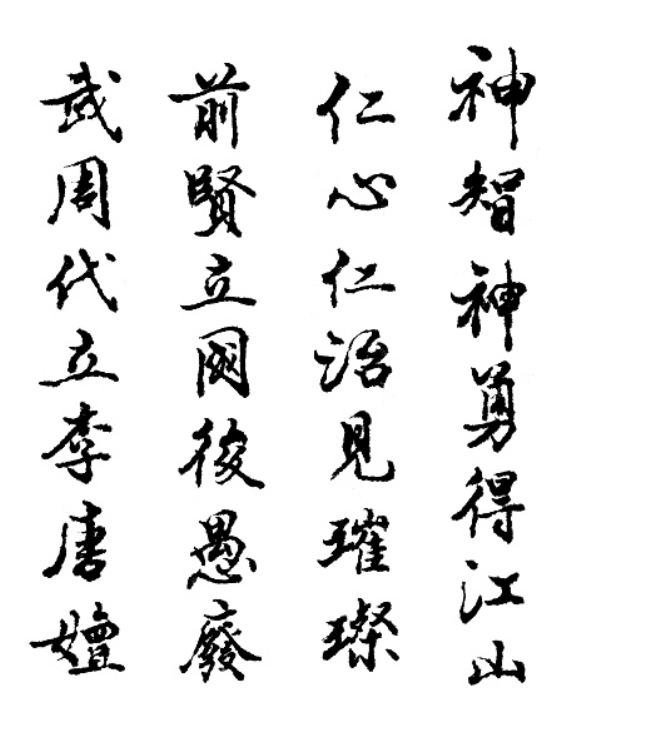 神智神勇得江山
仁心仁治見璀璨
前賢立國後愚廢
武周代立李唐嬗